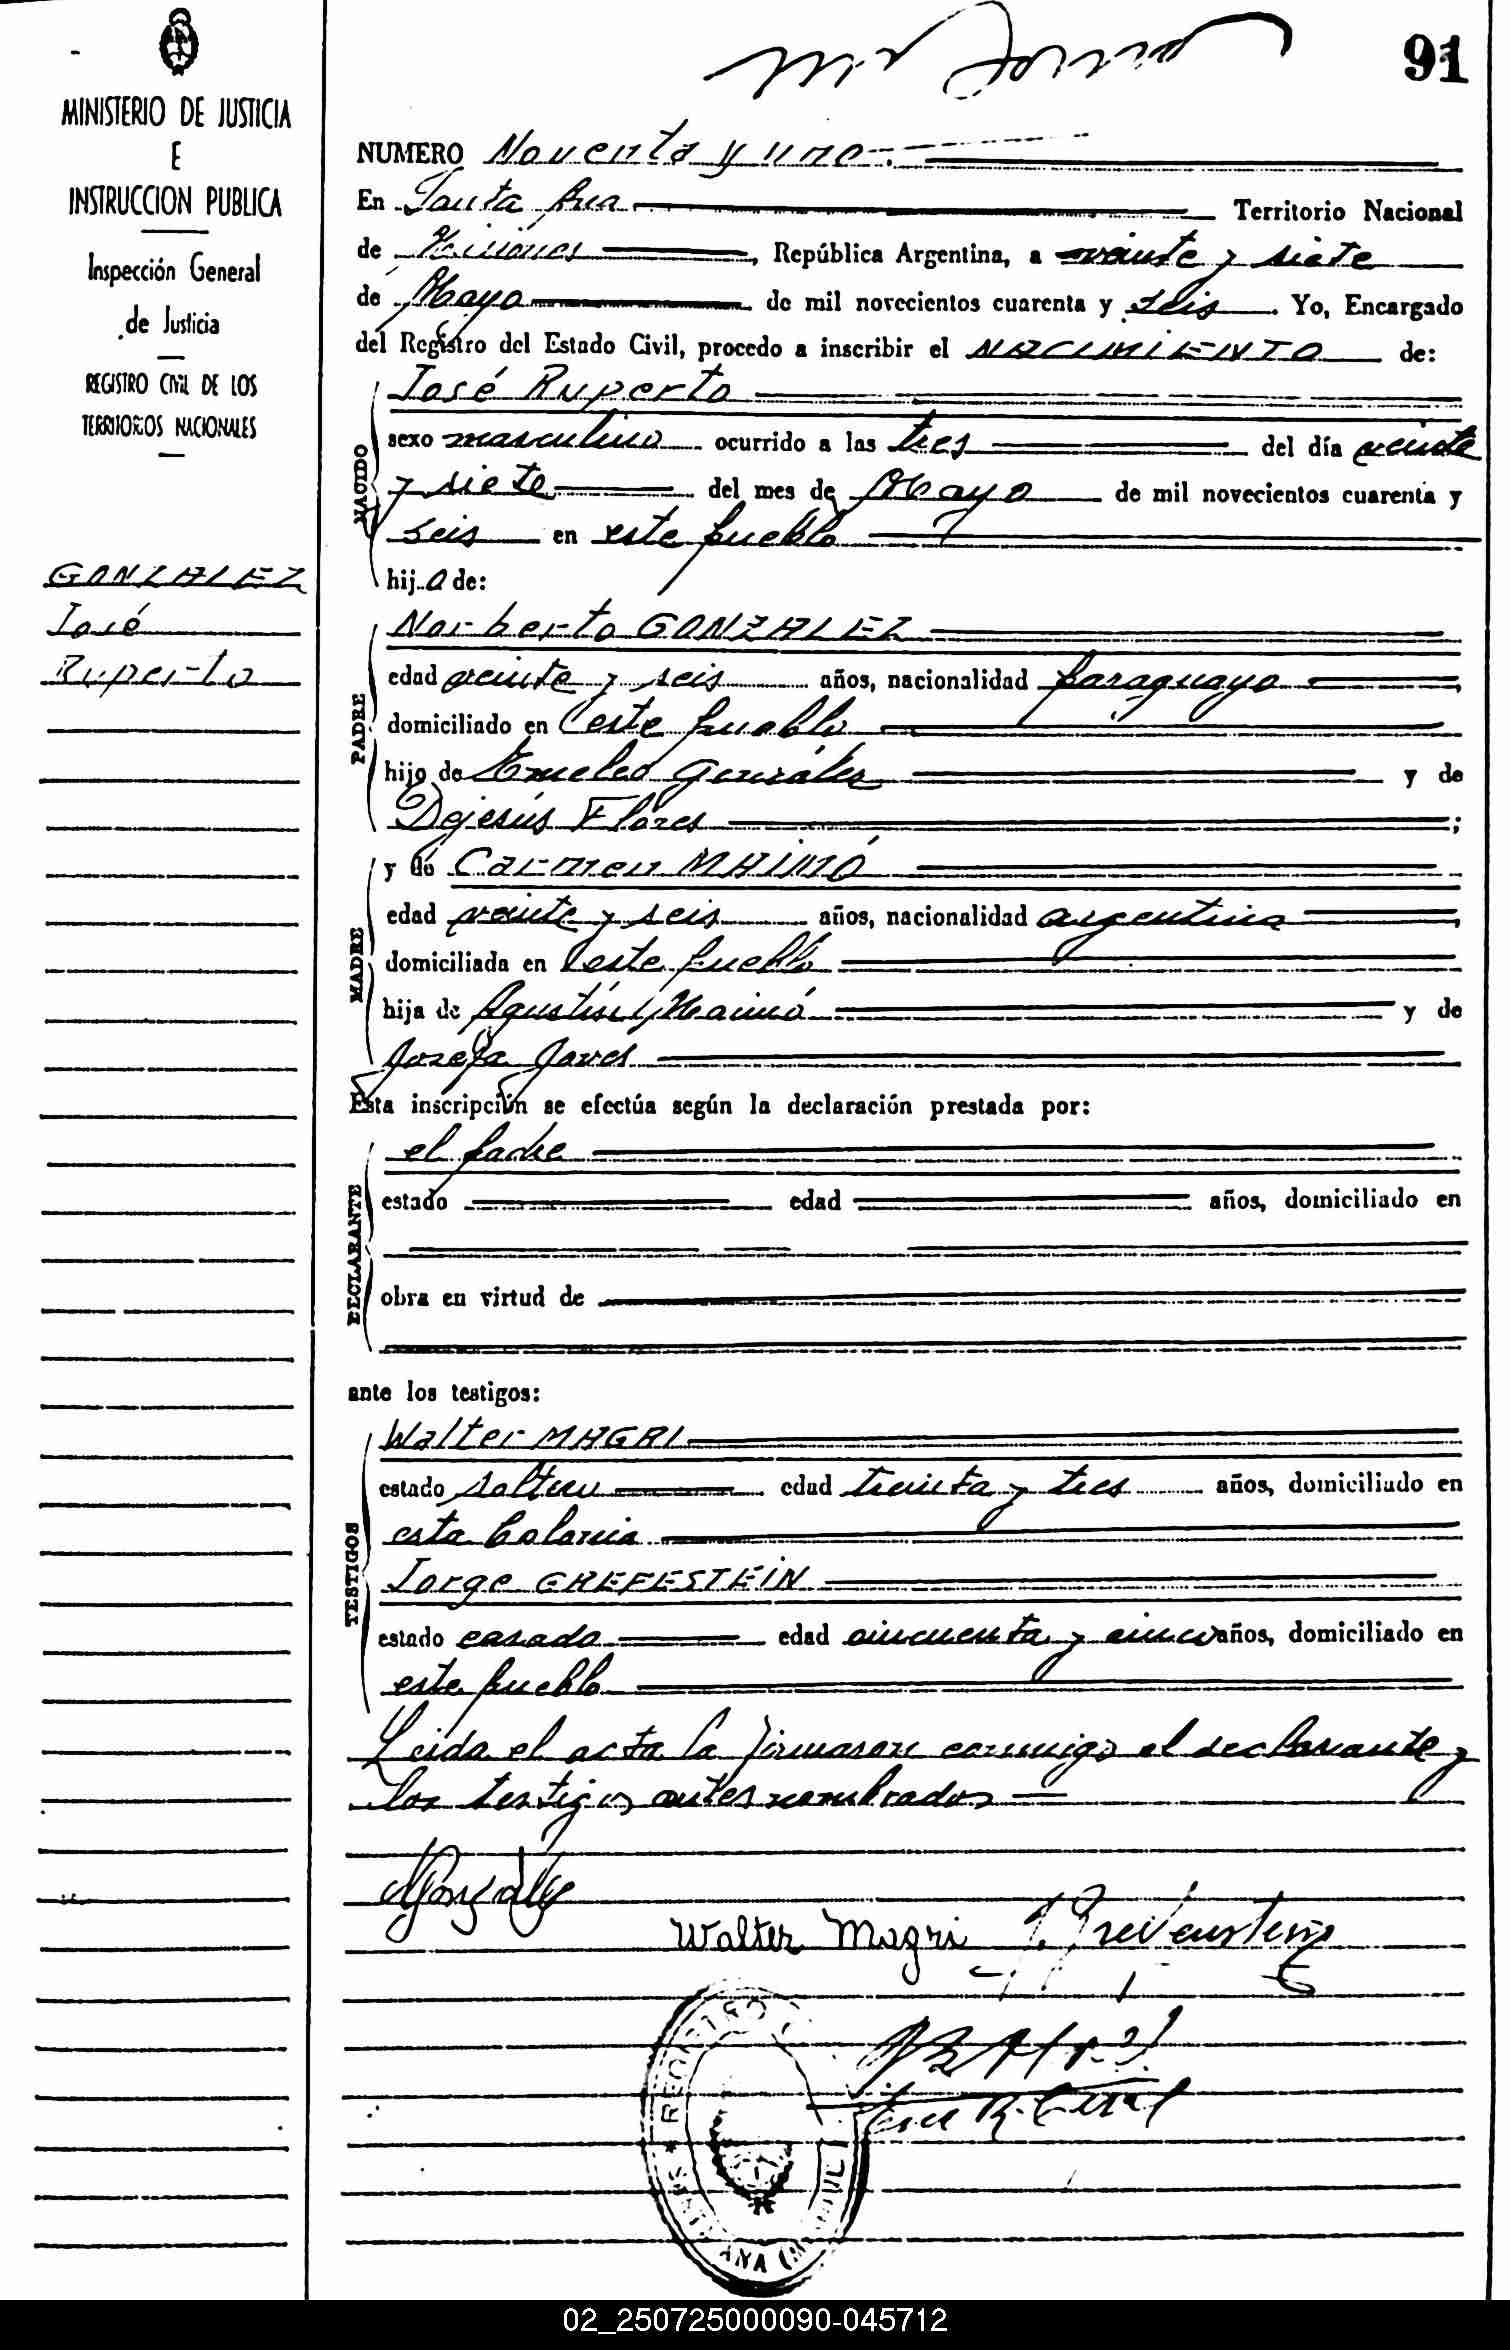 91
MINISTERIO DE JUSTICIA
E
INSTRUCCION PUBLICA
Inspección General
de Justicia
REGISTRO CIVIL DE LOS
TERRITORIOS NACIONALES
GONZALEZ
José
Ruperto
NUMERO Noventa y uno
En Santa Ana Territorio Nacional
de Misiones, República Argentina, a veinte y siete
de Mayo de mil novecientos cuarenta y seis. Yo, Encargado
del Registro del Estado Civil, procedo a inscribir el NACIMIENTO de:
NACIDO
José Ruperto
sexo masculino ocurrido a las tres del día veinte
y siete del mes de Mayo de mil novecientos cuarenta y
seis en este pueblo
hijo de:
PADRE
Norberto GONZALEZ
edad veinte y seis años, nacionalidad paraguayo,
domiciliado en este pueblo
hijo de González y de
Dejesús Flores;
MADRE
y de Carmen MAIMÓ
edad veinte y seis años, nacionalidad argentina,
domiciliada en este pueblo
hija de Agustín Maimó y de
Josefa
Esta inscripción se efectúa según la declaración prestada por:
DECLARANTE
el padre
estado edad años, domiciliado en
obra en virtud de
ante los testigos:
TESTIGOS
Walter MAGRI
estado soltero edad treinta y tres años, domiciliado en
esta Colonia
Jorge GREFESTEIN
estado casado edad cincuenta y cinco años, domiciliado en
este pueblo
Leida el acta la firmaron conmigo el declarante y
los testigos antes nombrados
NGonzález
Walter Magri
REGISTRO CIVIL * SANTA ANA
02_250725000090-045712